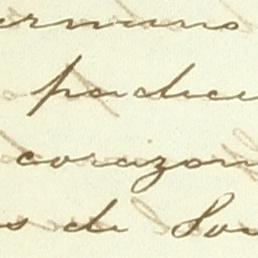 ermano
padece
corazon
s de Sou